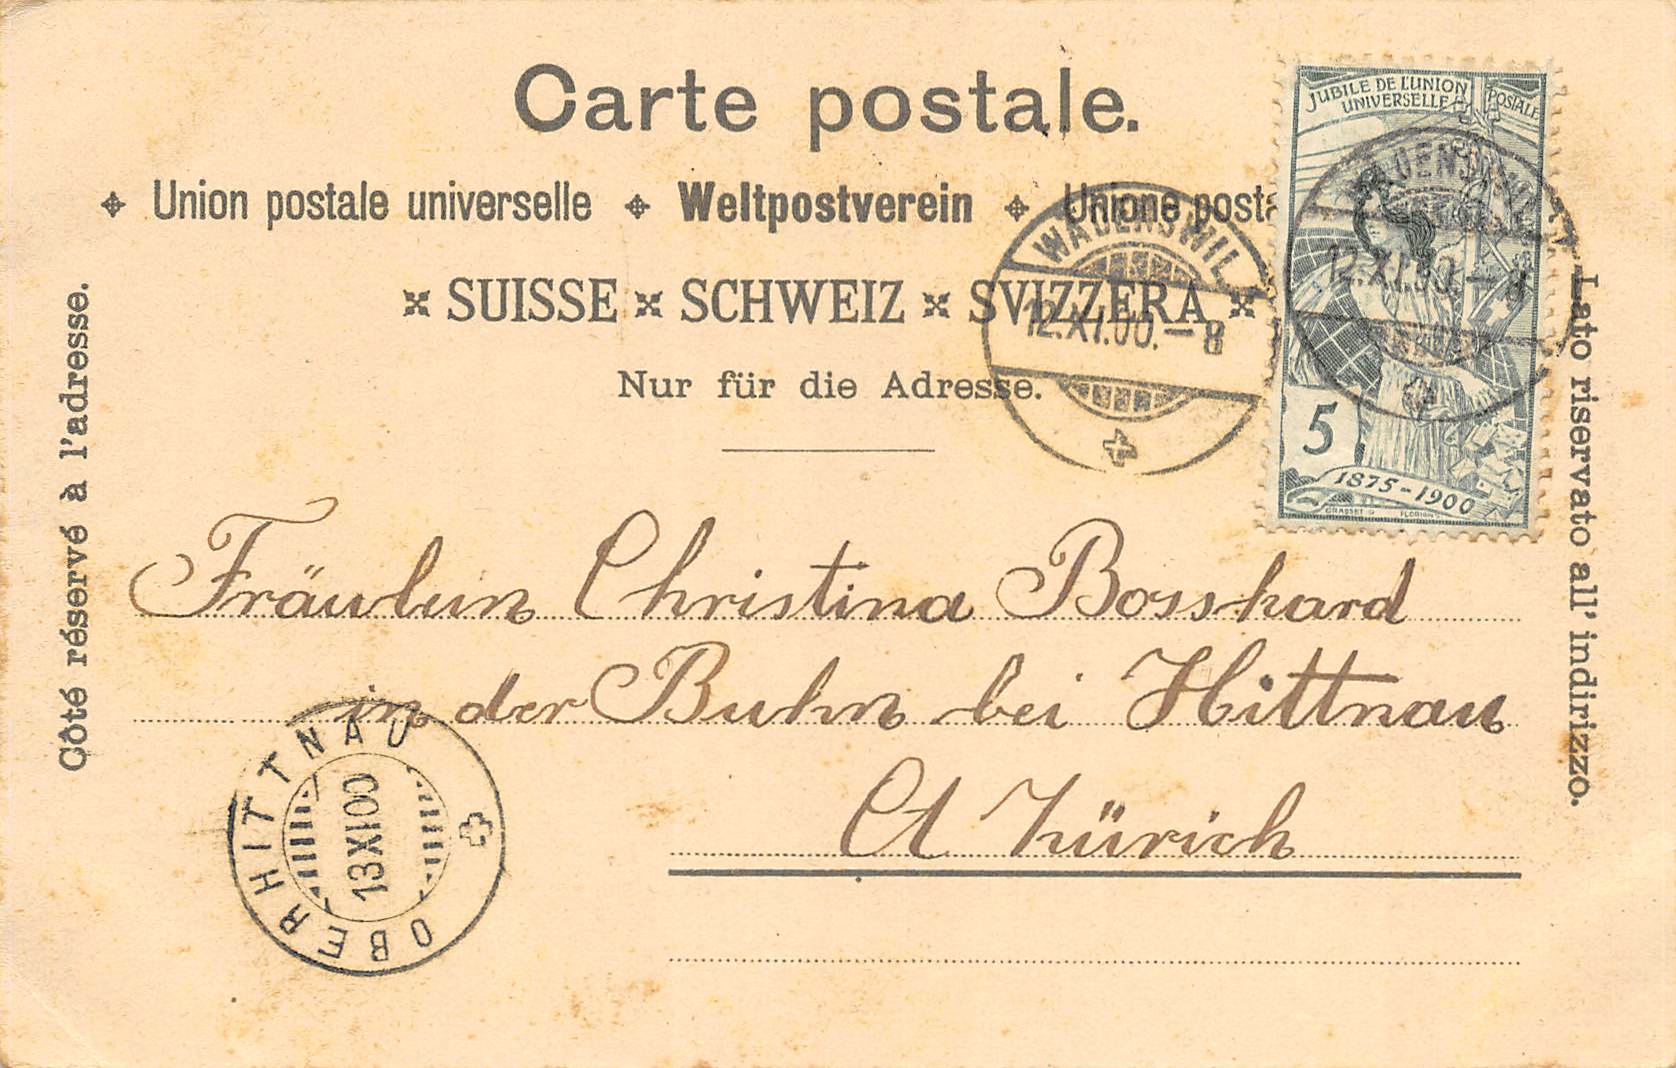 Carte postale.
Union postale universelle Weltpostverein Unione posta
SUISSE SCHWEIZ SVIZZERA
Nur für die Adresse.
Côté réservé à l'adresse.
Lato riservato all' indirizzo.
JUBILE DE L'UNION
UNIVERSELLE POSTALE
5
1875-1900
GRASSET
WÄDENSWIL
12.XI.00.-8
WÄDENSWIL
12.XI.00.-8
Fräulein Christina Bosshard
in der Buhn bei Hittnau
Ct Zürich
OBERHITTNAU
13XI00